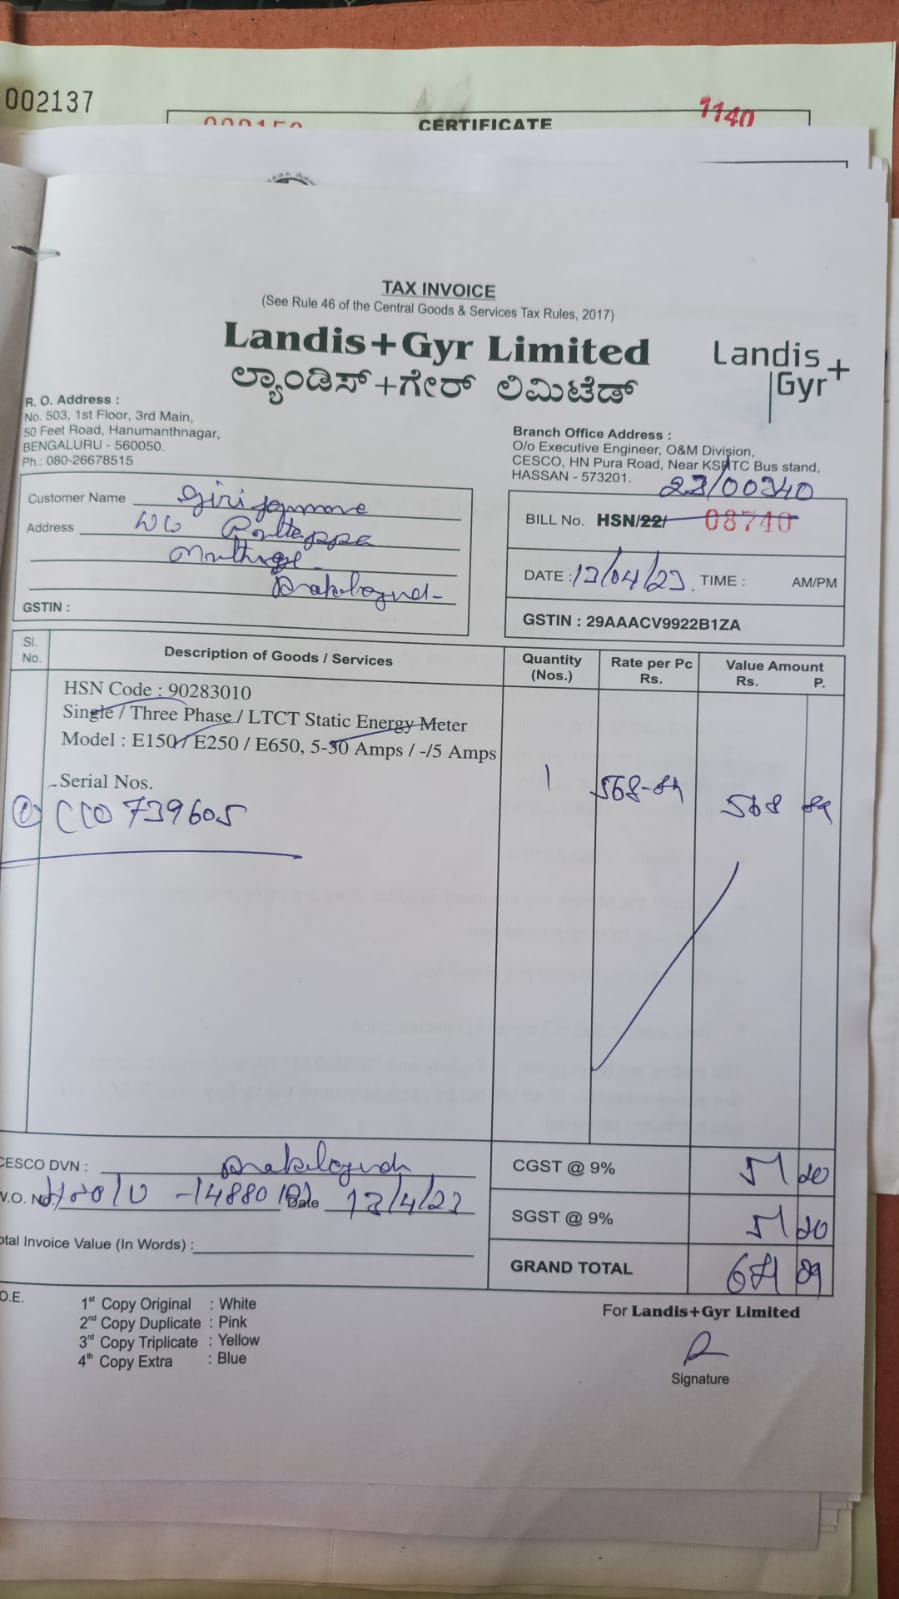 002137
CERTIFICATE
1140
TAX INVOICE
(See Rule 46 of the Central Goods & Services Tax Rules, 2017)
Landis+Gyr Limited
ಲ್ಯಾಂಡಿಸ್+ಗೇರ್ ಲಿಮಿಟೆಡ್
Landis+
Gyr
R. O. Address :
No. 503, 1st Floor, 3rd Main,
50 Feet Road, Hanumanthnagar,
BENGALURU - 560050.
Ph.: 080-26678515
Branch Office Address :
O/o Executive Engineer, O&M Division,
CESCO, HN Pura Road, Near KSRTC Bus stand,
HASSAN - 573201.
23/00340
Customer Name
Address
GSTIN :
BILL No. HSN/22/ 08740
DATE : 13/04/23. TIME : AM/PM
GSTIN : 29AAACV9922B1ZA
Sl. No. Description of Goods / Services Quantity (Nos.) Rate per Pc Rs. Value Amount Rs. P.
HSN Code : 90283010
Single / Three Phase / LTCT Static Energy Meter
Model : E150 / E250 / E650, 5-30 Amps / -/5 Amps
Serial Nos.
1 568 568
CESCO DVN :
W.O. No. Date 13/4/23
CGST @ 9% 51 20
SGST @ 9% 51 20
Total Invoice Value (In Words) :
GRAND TOTAL
O.E.
1st Copy Original : White
2nd Copy Duplicate : Pink
3rd Copy Triplicate : Yellow
4th Copy Extra : Blue
For Landis+Gyr Limited
Signature